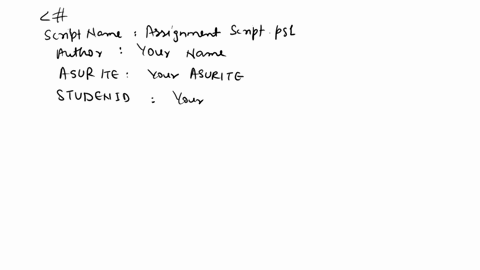 <#
Script Name : Assignment Script.ps1
Author : Your Name
ASURITE : Your ASURITE
STUDENID : Your